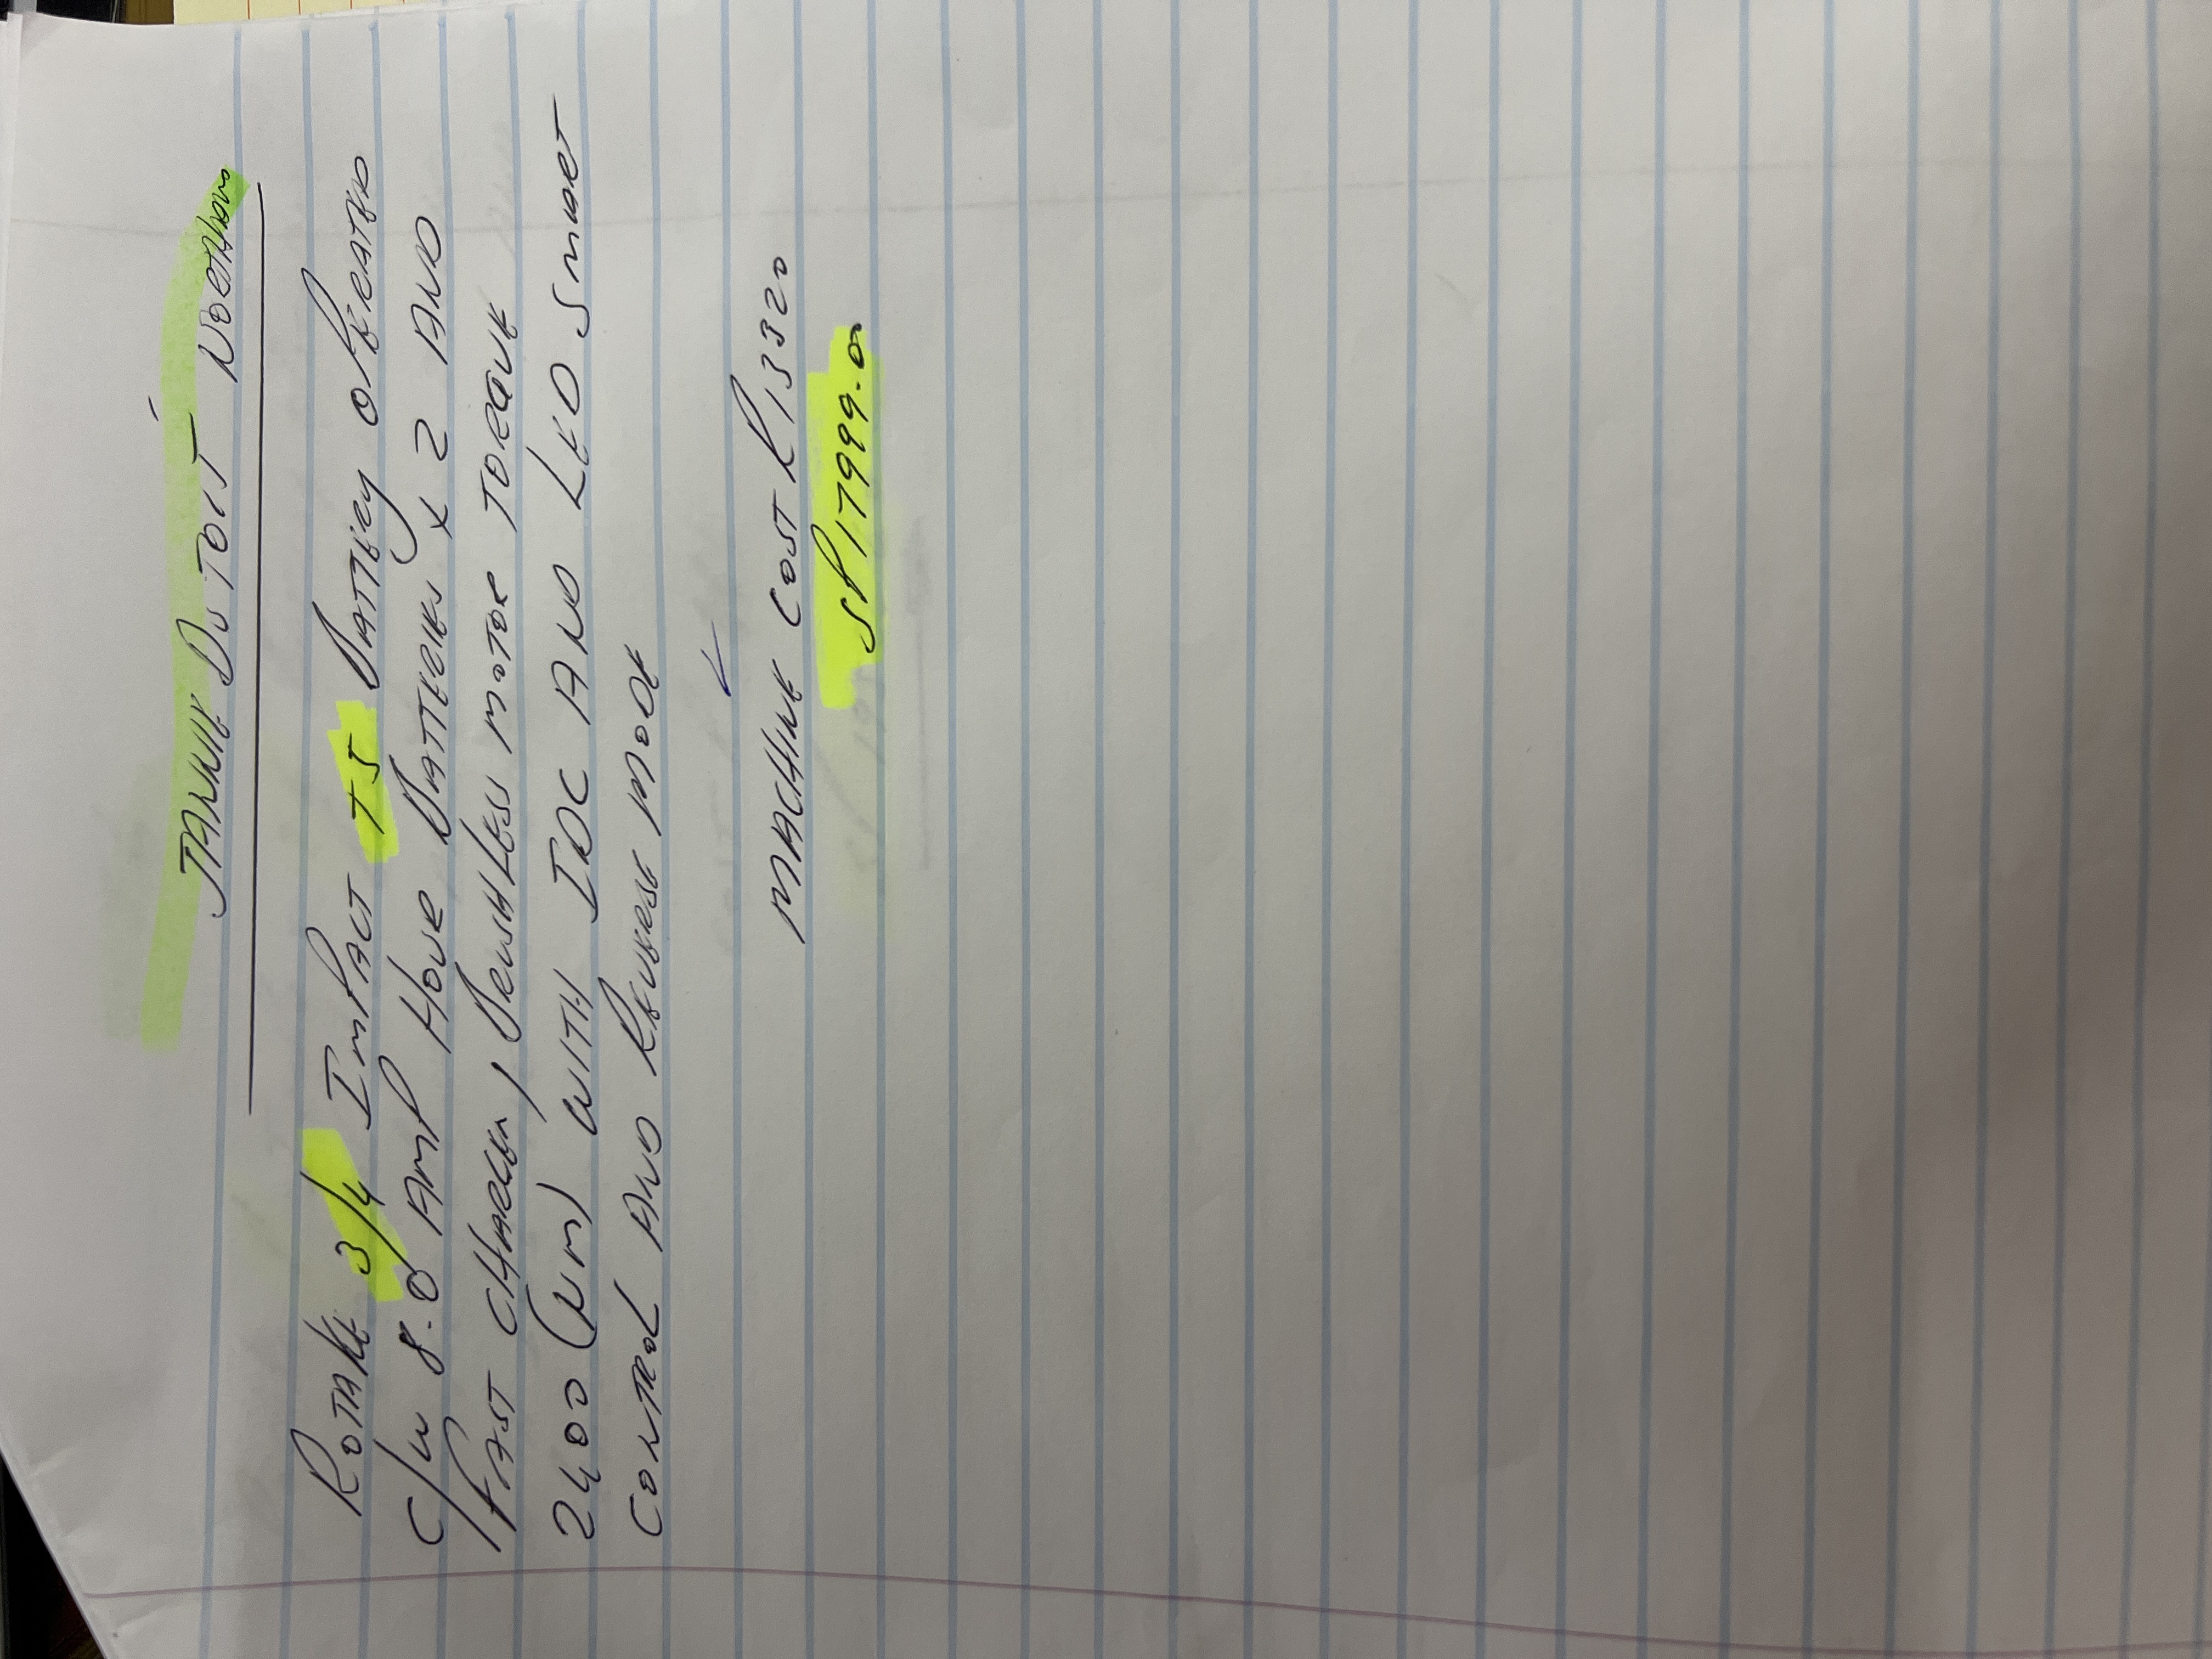 JANNIE DU TOIT
ROTAKE 3/4 IMPACT T5 BATTERY OPERATED
C/W 8.0 AMP HOUR BATTERIES x 2 AND
FAST CHARGER, BRUSHLESS MOTOR TORQUE
2400 (NM) WITH IDC AND LED SMART
CONTROL AND REVERSE MODE
MACHINE COST R13320
SP 17999.00